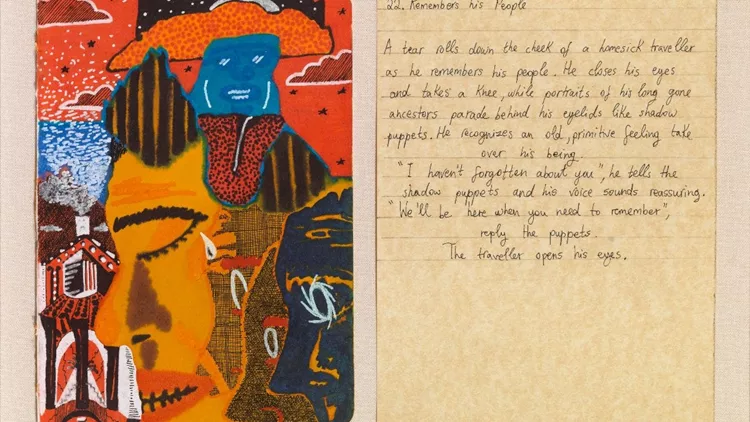 22. Remembers his People
A tear rolls down the cheek of a homesick traveller
as he remembers his people. He closes his eyes
and takes a knee, while portraits of his long gone
ancestors parade behind his eyelids like shadow
puppets. He recognizes an old, primitive feeling take
over his being.
"I haven't forgotten about you", he tells the
shadow puppets and his voice sounds reassuring.
"We'll be here when you need to remember",
reply the puppets.
The traveller opens his eyes.